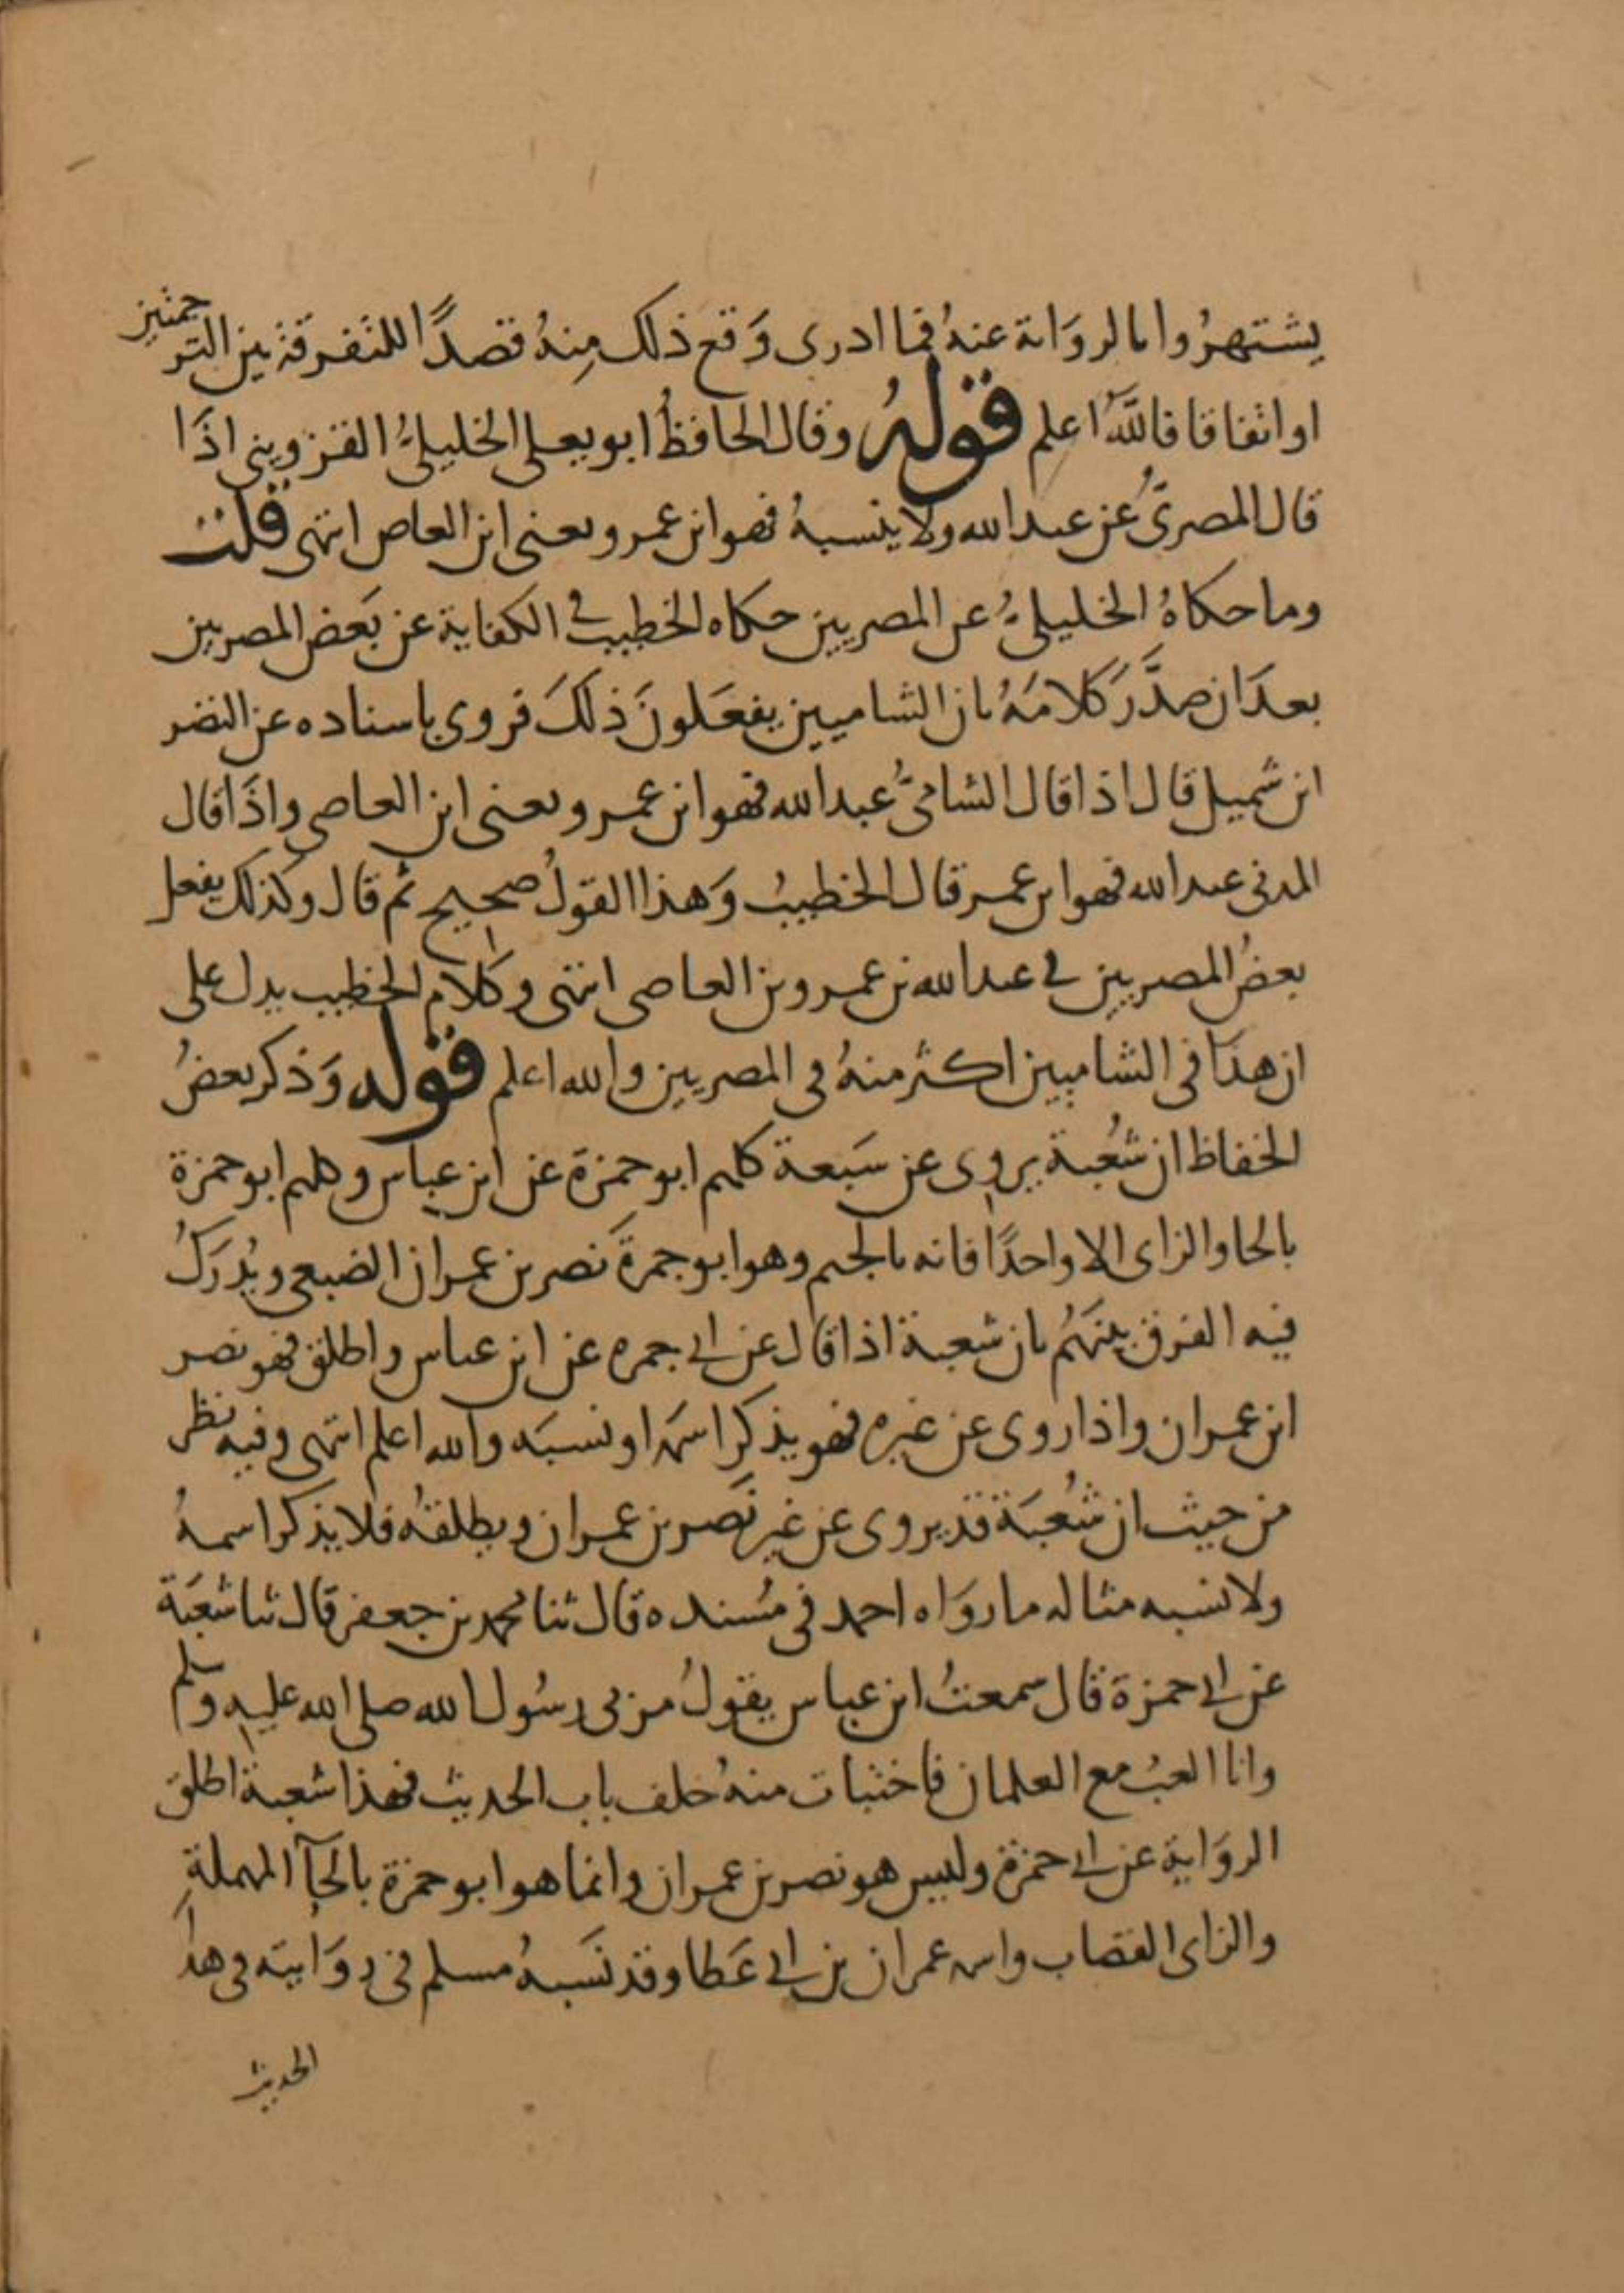 يشتهروا بالرواية عنه فما ادرى وقع ذلك منه قصدا للتفرقة بين الترجمتين
او اتفاقا فالله اعلم قوله وقال الحافظ ابو يعلى الخليلى القزوينى اذا
قال المصرى عن عبد الله ولا ينسبه فهو ابن عمرو يعنى ابن العاص انتهى قلت
وما حكاه الخليلى عن المصريين حكاه الخطيب فى الكفاية عن بعض المصريين
بعد ان صدر كلامه بان الشاميين يفعلون ذلك فروى باسناده عن النضر
ابن شميل قال اذا قال الشامى عبد الله فهو ابن عمرو يعنى ابن العاصى واذا قال
المدنى عبد الله فهو ابن عمر قال الخطيب وهذا القول صحيح ثم قال وكذلك يفعل
بعض المصريين فى عبد الله بن عمرو بن العاصى انتهى وكلام الخطيب يدل على
ان هذا فى الشاميين اكثر منه فى المصريين والله اعلم قوله وذكر بعض
الحفاظ ان شعبة يروى عن سبعة كلهم ابو حمزة عن ابن عباس وكلهم ابو حمزة
بالحا والزاى الا واحدا فانه بالجيم وهو ابو جمرة نصر بن عمران الضبعى ويدرك
فيه الفرق بينهم بان شعبة اذا قال عن ابى جمره عن ابن عباس واطلق فهو نصر
ابن عمران واذا روى عن غيره فهو يذكر اسمه او نسبه والله اعلم انتهى وفيه نظر
من حيث ان شعبة قد يروى عن غير نصر بن عمران ويطلقه فلا يذكر اسمه
ولا نسبه مثاله ما رواه احمد فى مسنده قال ثنا محمد بن جعفر قال ثنا شعبة
عن ابى حمزة قال سمعت ابن عباس يقول مر بى رسول الله صلى الله عليه وسلم
وانا العب مع الغلمان فاختبات منه خلف باب الحديث فهذا شعبة اطلق
الرواية عن ابى حمزة وليس هو نصر بن عمران وانما هو ابو حمزة بالحآ المهملة
والزاى القصاب واسمه عمران بن ابى عطا وقد نسبه مسلم فى روايته فى هذا
الحديث